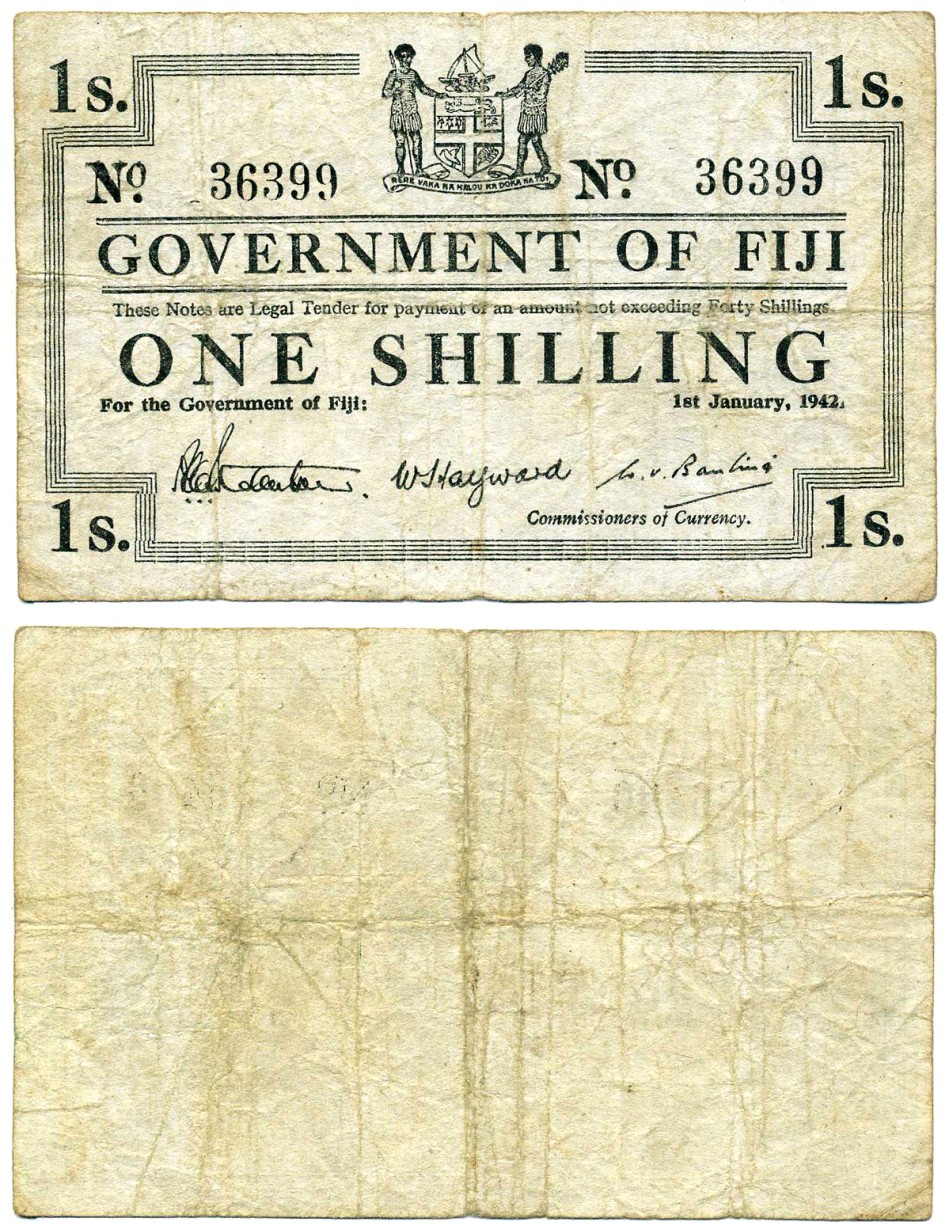 1s. 1s.
Nº 36399 Nº 36399
RERE VAKA NA KALOU KA DOKA NA TUI
GOVERNMENT OF FIJI
These Notes are Legal Tender for payment of an amount not exceeding Forty Shillings.
ONE SHILLING
For the Government of Fiji: 1st January, 1942.
W Hayward
Commissioners of Currency.
1s. 1s.